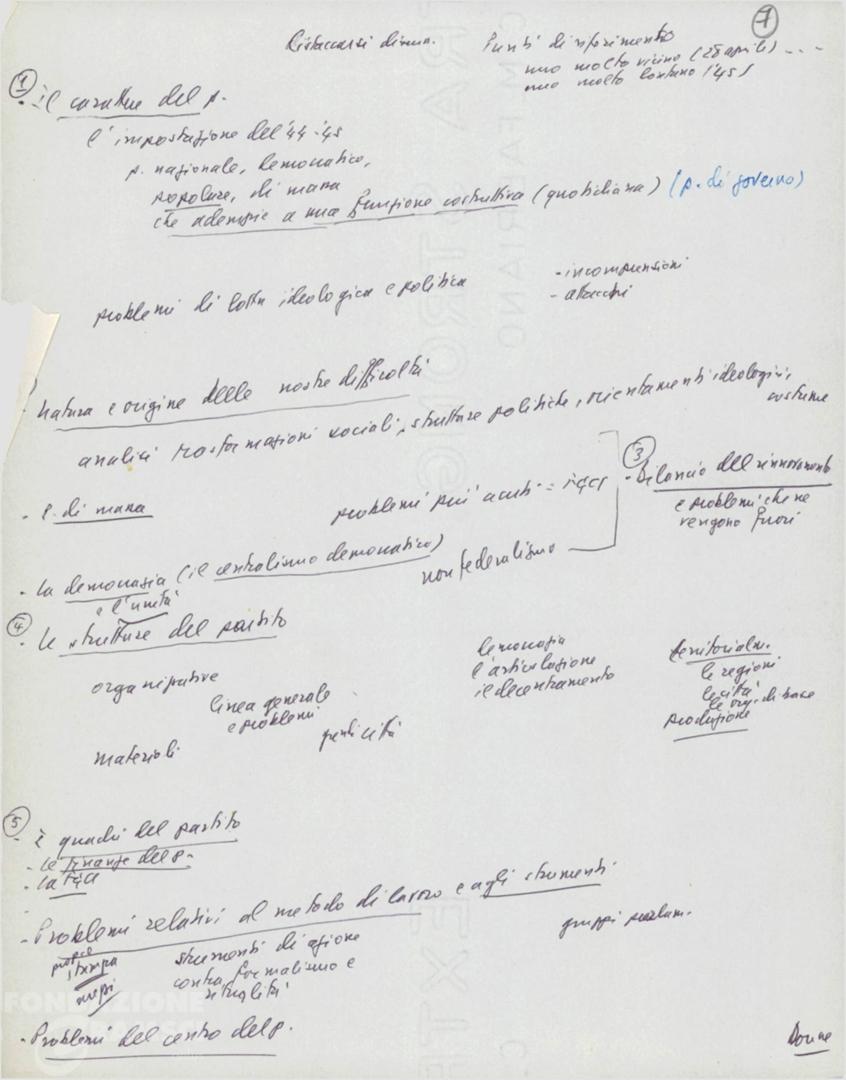 7
Distaccarsi dimin.
Punti di riferimento
uno molto vicino (28 aprile) ...
uno molto lontano (45)
1
- il carattere del p.
l'impostazione del '44-45
p. nazionale, democratico,
popolare, di massa
che adempie a una funzione costruttiva (quotidiana) (p. di governo)
problemi di lotta ideologica e politica
- incomprensioni
- attacchi
- natura e origine delle nostre difficoltà
analisi trasformazioni sociali, strutture politiche, orientamenti ideologici,
costume
- p. di massa
problemi più acuti = FGCI
3
- Bilancio del rinnovamento
e problemi che ne
vengono fuori
- la democrazia (il centralismo democratico)
e l'unità
non federalismo
4
- le strutture del partito
organizzative
linea generale
e problemi
materiali
pubblicità
democrazia
l'articolazione
il decentramento
territorialm.
le regioni
le città
le org. di base
produzione
5
- I quadri del partito
- le finanze del p.
- la FGCI
- Problemi relativi al metodo di lavoro e agli strumenti
stampa
strumenti di azione
contro formalismo e
ritualità
gruppi parlam.
- Problemi del centro del p.
Donne
FONDAZIONE